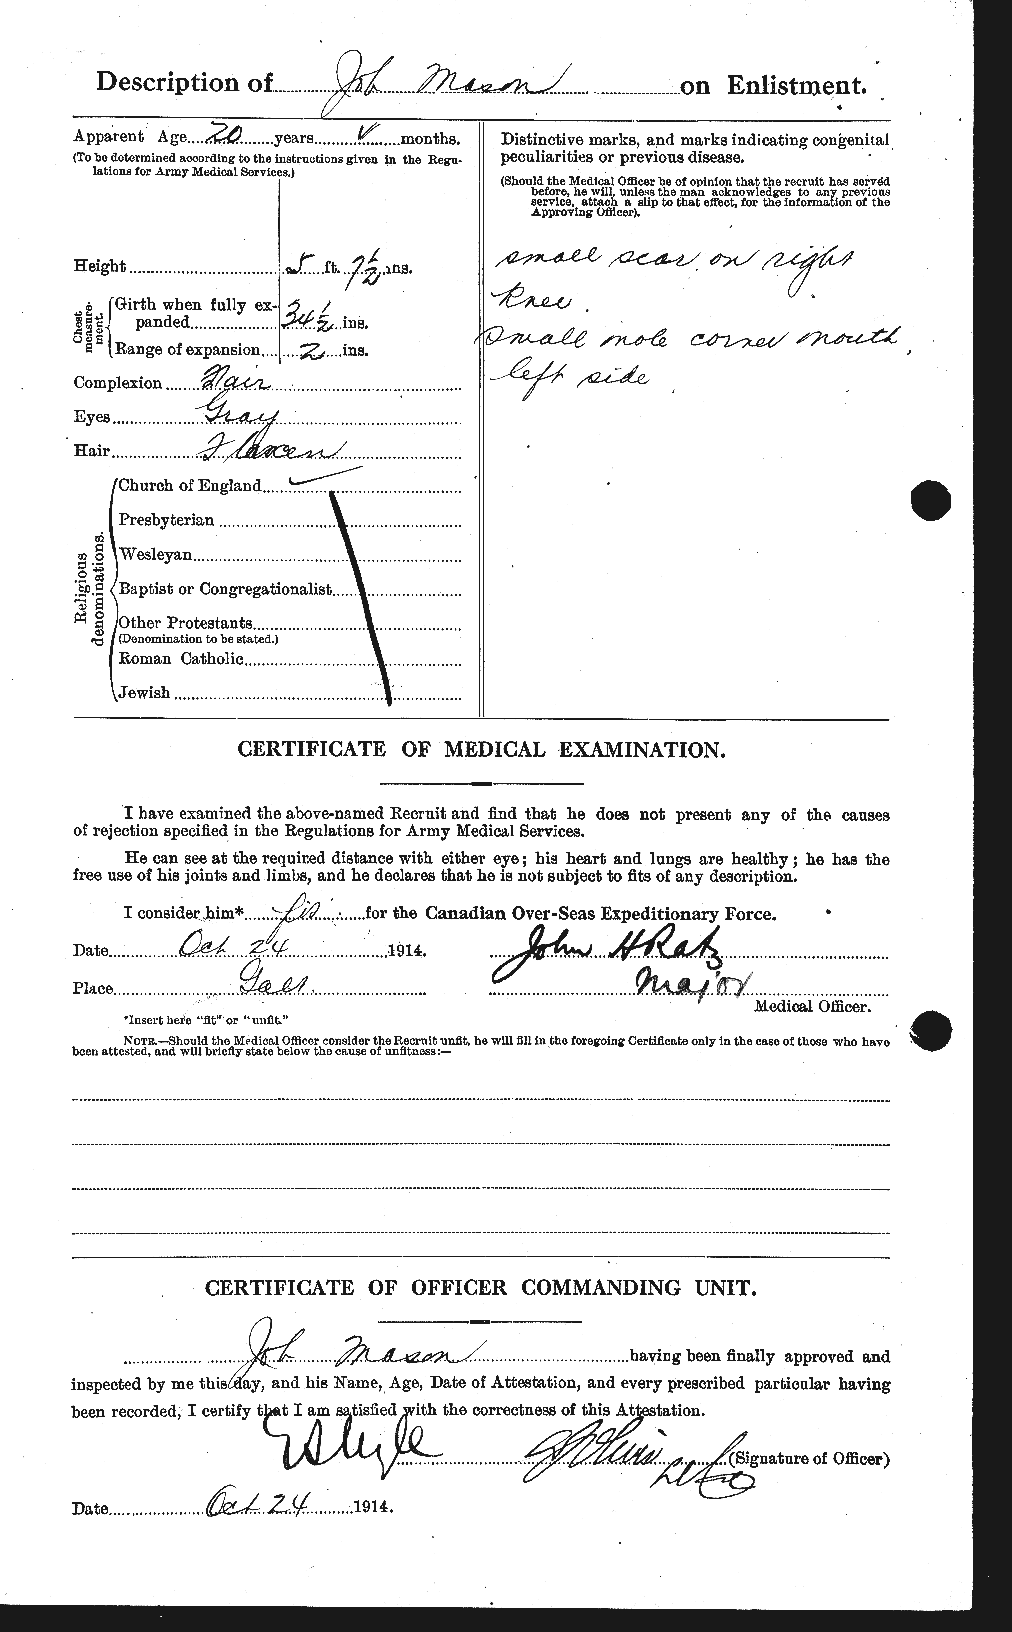 Description of Job Mason on Enlistment.
Apparent Age 20 years months.
(To be determined according to the instructions given in the Regulations for Army Medical Services.)
Height 5 ft. 7 1/2 ins.
Chest measurement.
Girth when fully expanded 34 1/2 ins.
Range of expansion 2 ins.
Complexion Fair
Eyes Gray
Hair Flaxen
Religious denominations.
Church of England ✓
Presbyterian
Wesleyan
Baptist or Congregationalist
Other Protestants
(Denomination to be stated.)
Roman Catholic
Jewish
Distinctive marks, and marks indicating congenital
peculiarities or previous disease.
(Should the Medical Officer be of opinion that the recruit has served
before, he will, unless the man acknowledges to any previous
service, attach a slip to that effect, for the information of the
Approving Officer).
small scar on right
knee
small mole corner mouth
left side
CERTIFICATE OF MEDICAL EXAMINATION.
I have examined the above-named Recruit and find that he does not present any of the causes
of rejection specified in the Regulations for Army Medical Services.
He can see at the required distance with either eye; his heart and lungs are healthy; he has the
free use of his joints and limbs, and he declares that he is not subject to fits of any description.
I consider him* fit for the Canadian Over-Seas Expeditionary Force.
Date Oct 24 1914.
John H Ratz
Place Galt
Major
Medical Officer.
*Insert here "fit" or "unfit."
NOTE.—Should the Medical Officer consider the Recruit unfit, he will fill in the foregoing Certificate only in the case of those who have
been attested, and will briefly state below the cause of unfitness:—
CERTIFICATE OF OFFICER COMMANDING UNIT.
Job Mason having been finally approved and
inspected by me this day, and his Name, Age, Date of Attestation, and every prescribed particular having
been recorded, I certify that I am satisfied with the correctness of this Attestation.
(Signature of Officer)
Date Oct 24 1914.